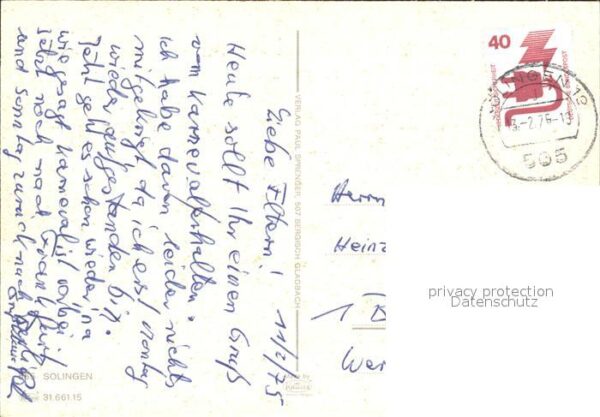 11/2/75
Liebe Eltern!
Heute sollt Ihr einen Gruß
vom Karneval erhalten.
Ich habe davon leider nichts
mitgekriegt da ich erst Montag
wieder aufgestanden bin.
Jetzt geht es schon wieder
wie gesagt Karneval ist vorbei
jetzt noch nach Frankfurt
und Sonntag zurück nach
VERLAG PAUL SPRENGER, 507 BERGISCH GLADBACH
SOLINGEN
31.661.15
40
DEUTSCHE BUNDESPOST
565
Herrn
Heinz
1
privacy protection
Datenschutz